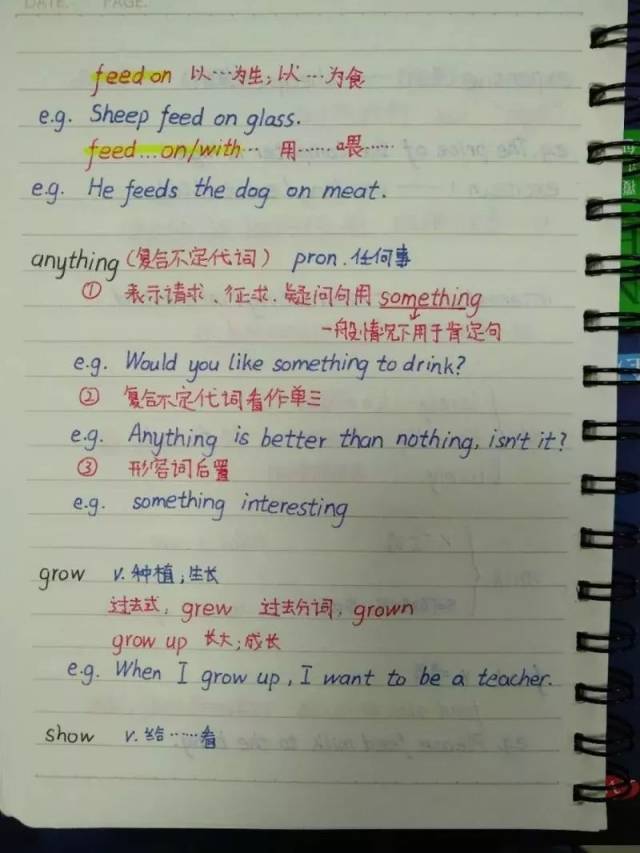 DATE. PAGE.
feed on 以…为生;以…为食
e.g. Sheep feed on glass.
feed...on/with… 用……喂……
e.g. He feeds the dog on meat.
anything (复合不定代词) pron. 任何事
① 表示请求、征求、疑问句用 something
一般情况下用于肯定句
e.g. Would you like something to drink?
② 复合不定代词看作单三
e.g. Anything is better than nothing, isn't it?
③ 形容词后置
e.g. something interesting
grow v. 种植;生长
过去式, grew 过去分词, grown
grow up 长大;成长
e.g. When I grow up, I want to be a teacher.
show v. 给……看